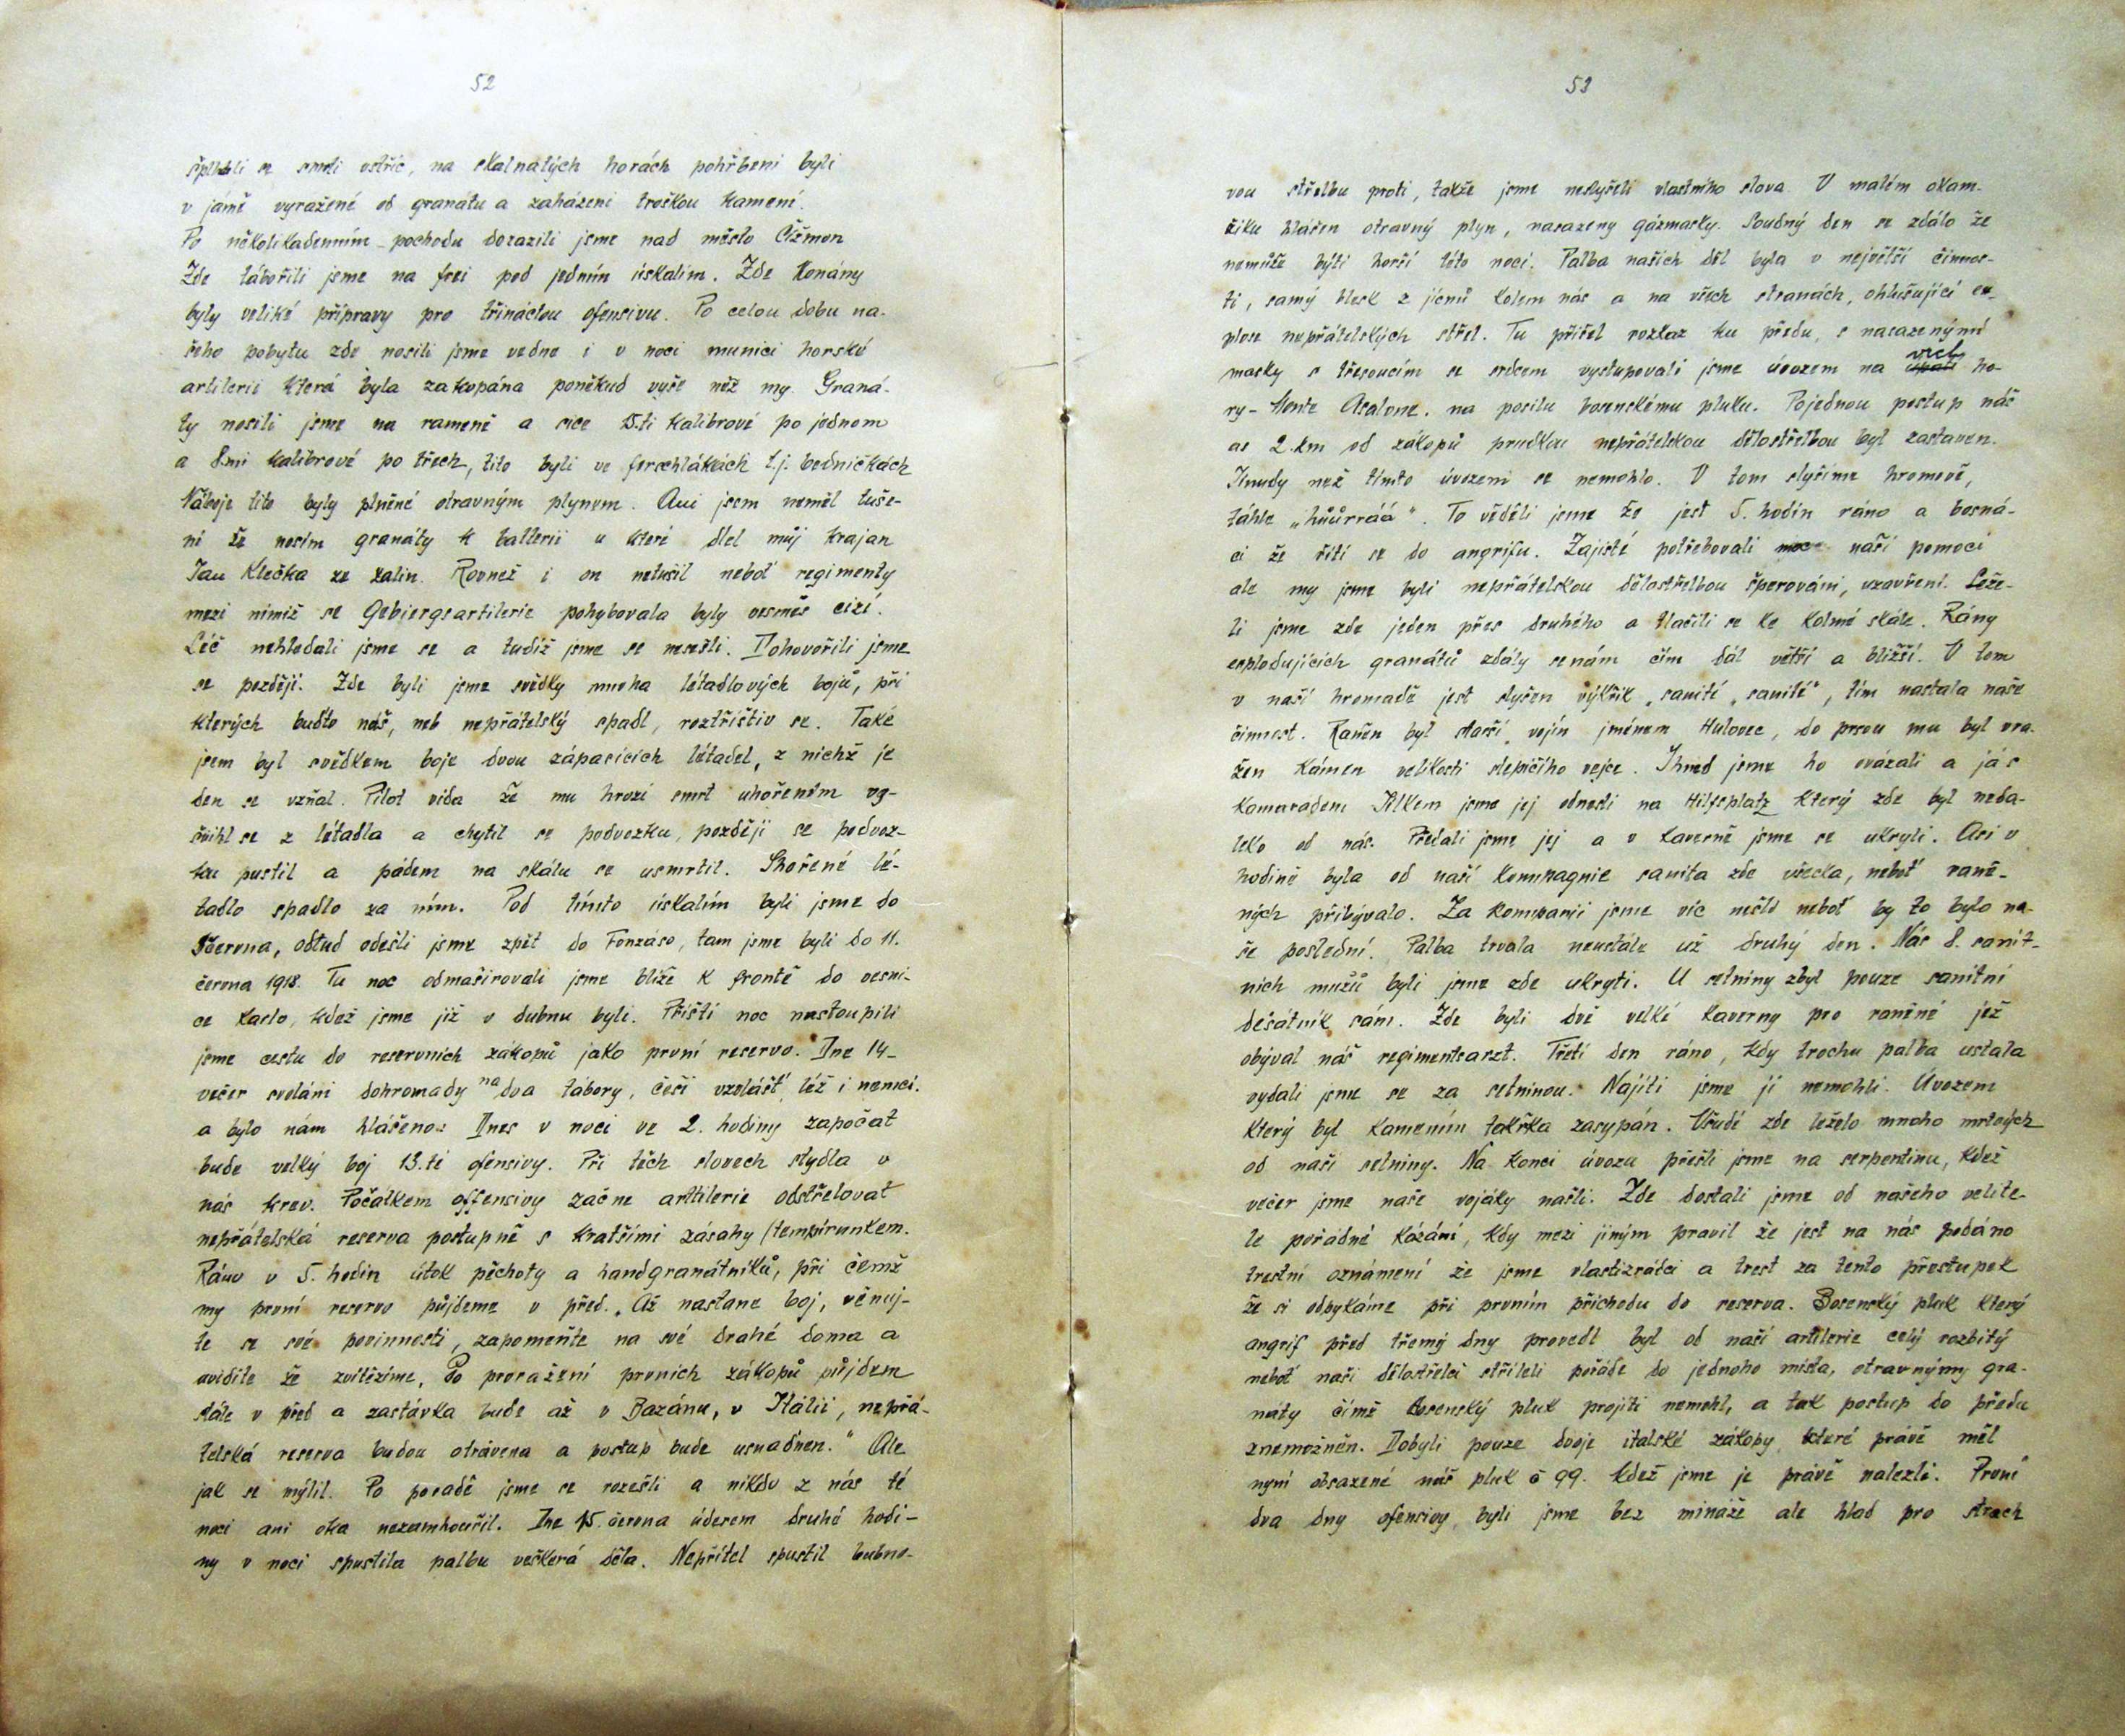 52
šplhali se smrti vstříc, na skalnatých horách pohřbeni byli
v jámě vyražené od granátu a zaházeni troškou kamení.
Po několikadenním pochodu dorazili jsme nad město Čižmon
Zde tábořili jsme na frei pod jedním úskalím. Zde konány
byly veliké přípravy pro třináctou ofensivu. Po celou dobu na-
šeho pobytu zde nosili jsme ve dne i v noci munici horské
artilerii která byla zakopána poněkud výše než my. Graná-
ty nosili jsme na rameně a sice 15.ti kalibrové po jednom
a 8.mi kalibrové po třech, tito byli ve ferschlákách t.j. bedničkách
Náboje tito byly plněné otravným plynem. Ani jsem neměl tuše-
ní že nosím granáty k batterii u které dlel můj krajan
Jan Klečka ze Zalin. Rovnež i on netušil neboť regimenty
mezi nimiž se Gebiergsartilerie pohybovala byly vesměs cizí.
Léč nehledali jsme se a tudíž jsme se nesešli. Dohovořili jsme
se později. Zde byli jsme svědky mnoha létadlových bojů, při
kterých buďto náš, neb nepřátelský spadl, roztříštiv se. Také
jsem byl svědkem boje dvou zápasících létadel, z nichž je
den se vzňal. Pilot vida že mu hrozí smrt uhořením vy-
švihl se z létadla a chytil se podvozku, později se podvoz-
ku pustil a pádem na skálu se usmrtil. Shořené lé-
tadlo spadlo za ním. Pod tímto úskalím byli jsme do
9června, odtud odešli jsme zpět do Fonzáso, tam jsme byli do 11.
června 1918. Tu noc odmaširovali jsme blíže k frontě do vesni-
ce Kaslo, kdež jsme již v dubnu byli. Příští noc nastoupili
jsme cestu do reservních zákopů jako první reservo. Dne 14-
večer svoláni dohromady na dva tábory, češi vzvlášť, též i nemci.
a bylo nám hlášeno: Dnes v noci ve 2. hodiny započat
bude velký boj 13.té ofensivy. Při těch slovech stydla v
nás krev. Počátkem offensivy začne arttilerie obstřelovat
nepřátelská reserva postupně s kratšími zásahy (tempírunkem.
Ráno v 5. hodin útok pěchoty a handgranátníků, při čemž
my první reservo půjdeme v před. „Až nastane boj, věnuj-
te se své povinnosti, zapomeňte na své drahé doma a
uvidíte že zvítězíme, Po proražení prvních zákopů půjdem
stále v před a zastávka bude až v Bazánu, v Itálii, nepřá-
telská reserva budou otrávena a postup bude usnadněn." Ale
jak se mýlil. Po poradě jsme se rozešli a nikdo z nás té
noci ani oka nezamhouřil. Dne 15. června úderem druhé hodi-
ny v noci spustila palbu veškerá děla. Nepřítel spustil bubno-
53
vou střelbu proti, takže jsme neslyšeli vlastního slova. V malém okam-
žiku hlášen otravný plyn, nasazeny gázmasky. Soudný den se zdálo že
nemůže býti horší této noci. Palba našich děl byla v největší činnos-
ti, samý blesk z jícnů kolem nás a na všech stranách, ohlušující ex-
plose nepřátelských střel. Tu přišel rozkaz ku předu, s nasazenými
masky s třesoucím se srdcem vystupovali jsme úvozem na vrch ho-
ry- Monte Asalone. na posilu bosenskému pluku. Pojednou postup náš
as 2.km od zákopů prudkou nepřátelskou dělostřelbou byl zastaven.
Jinudy než tímto úvozem se nemohlo. V tom slyšíme hromové,
táhle „hůůrráá". To věděli jsme že jest 5. hodin ráno a bosná-
ci že řítí se do angrifu. Zajisté potřebovali moc naší pomoci
ale my jsme byli nepřátelskou dělostřelbou šperováni, uzavřeni. Leže-
li jsme zde jeden přes druhého a tlačili se ke kolmé skále. Rány
explodujících granátů zdály se nám čím dál větší a bližší. V tom
v naší hromadě jest slyšen výkřik „sanité „sanité", tím nastala naše
činnost. Raněn byl starší vojín jménem Hulovec, do prsou mu byl vra-
žen kámen velikosti slepičího vejce. Ihned jsme ho ovázali a já s
kamarádem Jílkem jsme jej odnesli na Hilfsplatz který zde byl neda-
leko od nás. Předali jsme jej a v kaverně jsme se ukryli. Asi v
hodině byla od naší kompagnie sanita zde všecka, neboť raně-
ných přibývalo. Za kompanií jsme víc nešli neboť by to bylo na-
še poslední. Palba trvala neustále už druhý den. Nás 8. sanit-
ních mužů byli jsme zde ukryti. U setniny zbyl pouze sanitní
desátník sám. Zde byli dvě velké kaverny pro raněné jež
obýval náš regimentsarzt. Třetí den ráno, kdy trochu palba ustala
vydali jsme se za setninou. Najíti jsme jí nemohli. Úvozem
který byl kamením takřka zasypán. Všude zde leželo mnoho mrtvých
od naší setniny. Na konci úvozu přešli jsme na serpentinu, kdež
večer jsme naše vojáky našli. Zde dostali jsme od našeho velite-
le pořádné kázání, kdy mezi jiným pravil že jest na nás podáno
trestní oznámení že jsme vlastizrádci a trest za tento přestupek
že si odpykáme při prvním příchodu do reserva. Bosenský pluk který
angrif před třemý dny provedl byl od naší artilerie celý rozbitý
neboť naši dělostřelci stříleli pořáde do jednoho místa, otravnýmy gra-
náty čímž Bosenský pluk projíti nemohl, a tak postup do předu
znemožněn. Dobyli pouze dvoje italské zákopy které právě měl
nyní obsazené náš pluk č 99. kdež jsme je právě nalezli. První
dva dny ofensivy byli jsme bez mináže ale hlad pro strach